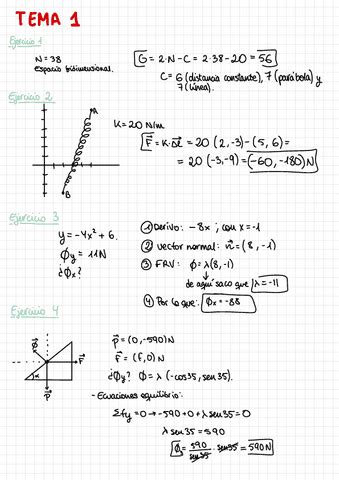 TEMA 1
Ejercicio 1
N = 38
Espacio bidimensional.
G = 2·N - C = 2·38 - 20 = 56
C = 6 (distancia constante), 7 (parábola) y
7 (línea).
Ejercicio 2
A
B
K = 20 N/m
F = K·Δl = 20 (2, -3) - (5, 6) =
= 20 (-3, -9) = (-60, -180) N
Ejercicio 3
y = -4x² + 6.
ϕy = 11N
¿ϕx?
① Derivo: -8x ; con x = -1
② Vector normal: n = (8, -1)
③ FRV: ϕ = λ(8, -1)
de aquí saco que λ = -11
④ Por lo que: ϕx = -88
Ejercicio 4
ϕ
F
α
P
P = (0, -590) N
F = (F, 0) N
¿ϕy? ϕ = λ (-cos35, sen35).
- Ecuaciones equilibrio:
Σfy = 0 → -590 + 0 + λ sen35 = 0
λ sen35 = 590
ϕ = 590/sen35 · sen35 = 590N